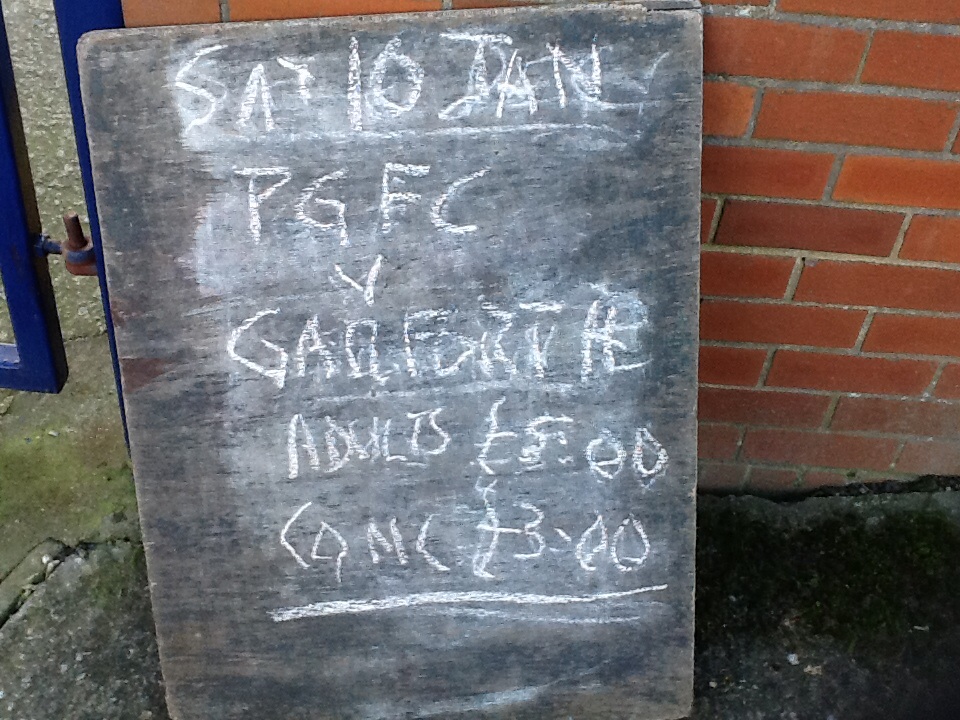 SAT 10 JAN
PGFC
V
GARFORTH
ADULTS £5.00
CONC £3.00